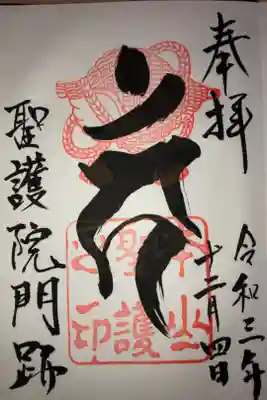 奉拝
令和三年
十二月四日
本山
聖護
之印
聖護院門跡